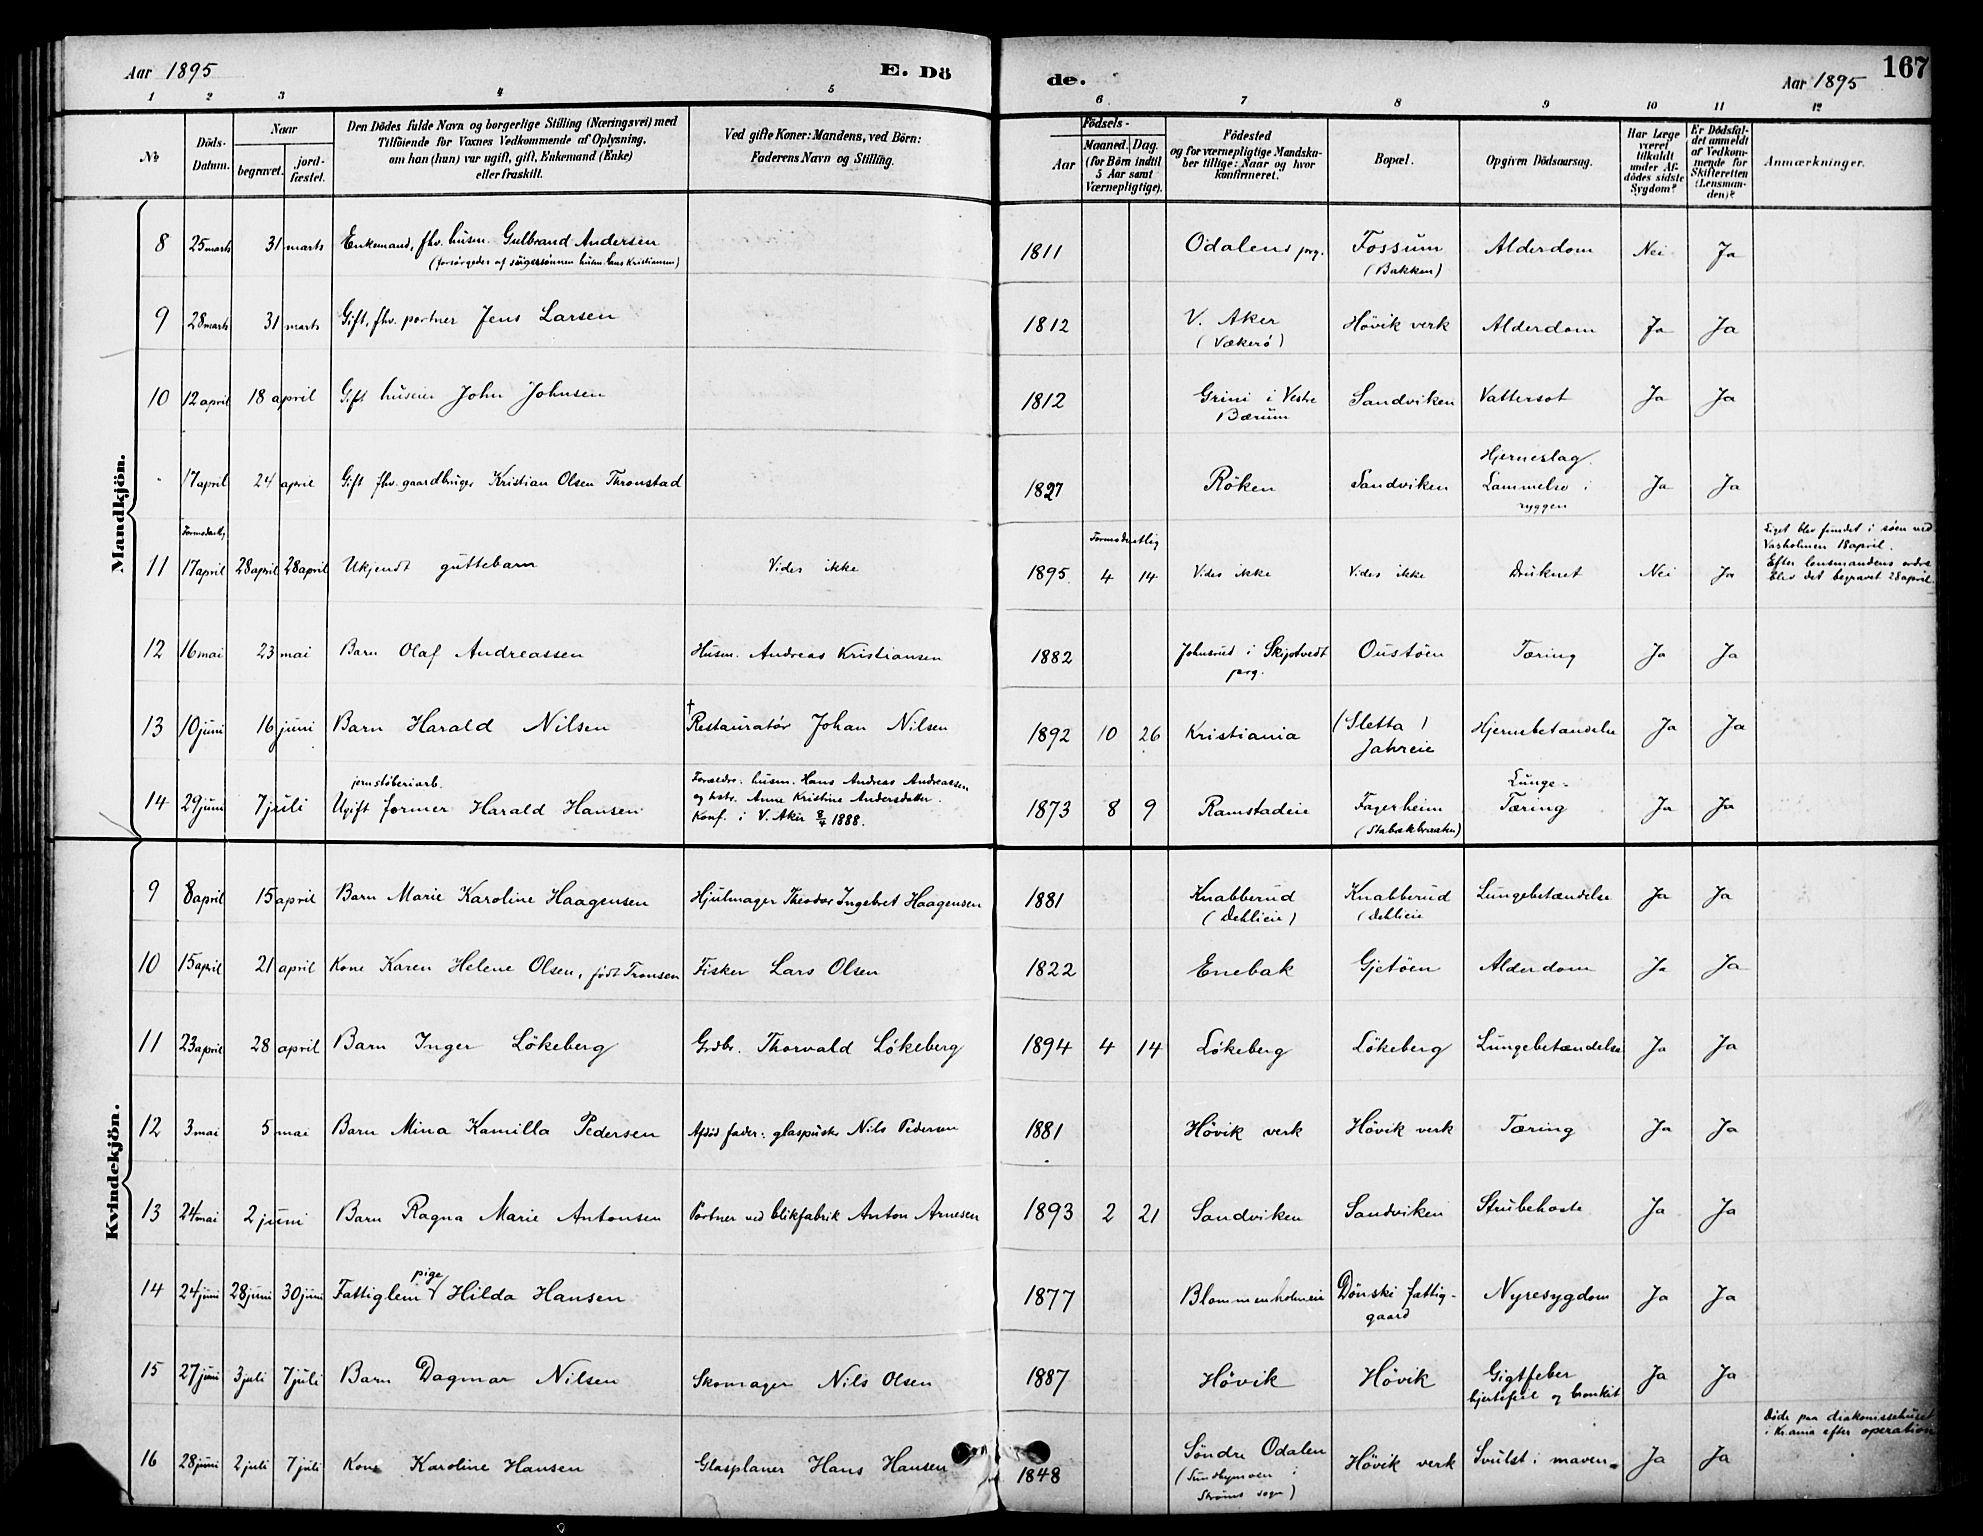 Aar 1895
E. Dö
de.
Aar 1895
167
1 2 3 4 5 6 7 8 9 10 11 12
No
Döds-Datum.
Naar
begravet.
jord-fæstet.
Den Dödes fulde Navn og borgerlige Stilling (Næringsvei) med
Tilföiende for Voxnes Vedkommende af Oplysning,
om han (hun) var ugift, gift, Enkemand (Enke)
eller fraskilt.
Ved gifte Koner: Mandens, ved Börn:
Faderens Navn og Stilling.
Födsels-
Aar
Maaned.
Dag.
(for Börn indtil
5 Aar samt
Værnepligtige).
Födested
og for værnepligtige Mandska-
ber tillige: Naar og hvor
konfirmeret.
Bopæl.
Opgiven Dödsaarsag.
Har Læge
været
tilkaldt
under Af-
dödes sidste
Sygdom?
Er Dödsfal-
det anmeldt
af Vedkom-
mende for
Skifteretten
(Lensman-
den)?
Anmærkninger.
Mandkjön.
8 25 marts 31 marts Enkemand, fhv. husm. Gulbrand Andersen 1811 Odalens prg. Fossum Alderdom Nei Ja
(forsørgedes af svigersønnen husm. Hans Kristiansen) (Bakken)
9 28 marts 31 marts Gift, fhv. portner Jens Larsen 1812 V. Aker Hövik verk Alderdom Ja Ja
(Vækerö)
10 12 april 18 april Gift huseier John Johnsen 1812 Grini i Vestre Sandviken Vattersot Ja Ja
Bærum
Hjerneslag.
17 april 24 april Gift fhv. gaardbruger Kristian Olsen Thronstad 1827 Röken Sandviken Lammelse i Ja Ja
ryggen
Formodentlig
Liget blev fundet i søen ved
18 april.
11 17 april 28 april 28 april Ukjendt guttebarn Vides ikke 1895 4 14 Vides ikke Vides ikke Druknet Nei Ja Efter lensmandens ordre
blev det begravet 28 april.
12 16 mai 23 mai Barn Olaf Andreassen Husm. Andreas Kristiansen 1882 Johnsrud i Skiptvedt Oustöen Tæring Ja Ja
prg.
13 10 juni 16 juni Barn Harald Nilsen † Restauratör Johan Nilsen 1892 10 26 Kristiania (Sletta) Hjernebetændelse Ja Ja
Jahreie
jernstøberiarb.
Forældre: husm. Hans Andreas Andreassen
Lunge-
14 29 juni 7 juli Ugift former Harald Hansen og hstr. Anne Kristine Andersdatter. 1873 8 9 Ramstadeie Fagerheim Tæring Ja Ja
Konf. i V. Aker 8/4 1888. (Stabækbraaten)
Kvindekjön.
9 8 april 15 april Barn Marie Karoline Haagensen Hjulmager Theodor Ingebret Haagensen 1881 Knabberud Knabberud Lungebetændelse Ja Ja
(Dehlieie) (Dehlieie
10 15 april 21 april Kone Karen Helene Olsen, født Tronsen Fisker Lars Olsen 1822 Enebak Gjetöen Alderdom Ja Ja
11 23 april 28 april Barn Inger Lökeberg Grdbr. Thorvald Lökeberg 1894 4 14 Lökeberg Lökeberg Lungebetændelse Ja Ja
12 3 mai 5 mai Barn Mina Kamilla Pedersen Afdød fader: glaspuster Nils Pedersen 1881 Hövik verk Hövik verk Tæring Ja Ja
13 24 mai 2 juni Barn Ragna Marie Antonsen Portner ved blikfabrik Anton Arnesen 1893 2 21 Sandviken Sandviken Strubehoste Ja Ja
pige
14 24 juni 28 juni 30 juni Fattiglem Hilda Hansen 1877 Blommenholmeie Dönski fattig- Nyresygdom Ja Ja
gaard
15 27 juni 3 juli 7 juli Barn Dagmar Nilsen Skomager Nils Olsen 1887 Hövik Hövik Gigtfeber Ja Ja
hjertefeil og bronkit
Døde paa diakonissehuset
i Kr.ania efter operation
16 28 juni 2 juli 7 juli Kone Karoline Hansen Glasplaner Hans Hansen 1848 Söndre Odalen Hövik verk Svulst i maven Ja Ja
(Sundbymoen i
Ströms sogn)